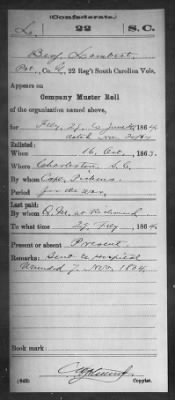 (Confederate.)
L 22 S.C.
Benj Lambert
Pvt, Co. G, 22 Reg't South Carolina Vols.
Appears on
Company Muster Roll
of the organization named above,
for Feby 29 to June 30, 1864.
Enlisted:
When 16 Oct, 1863.
Where Charleston S.C.
By whom Capt.
Period for the war
Last paid:
By whom Q.M. at Richmond
To what time 29 Feby, 1864.
Present or absent Present
Remarks: Sent to Hospital
Wounded 7. Nov. 1864
Book mark:
(642) Copyist.